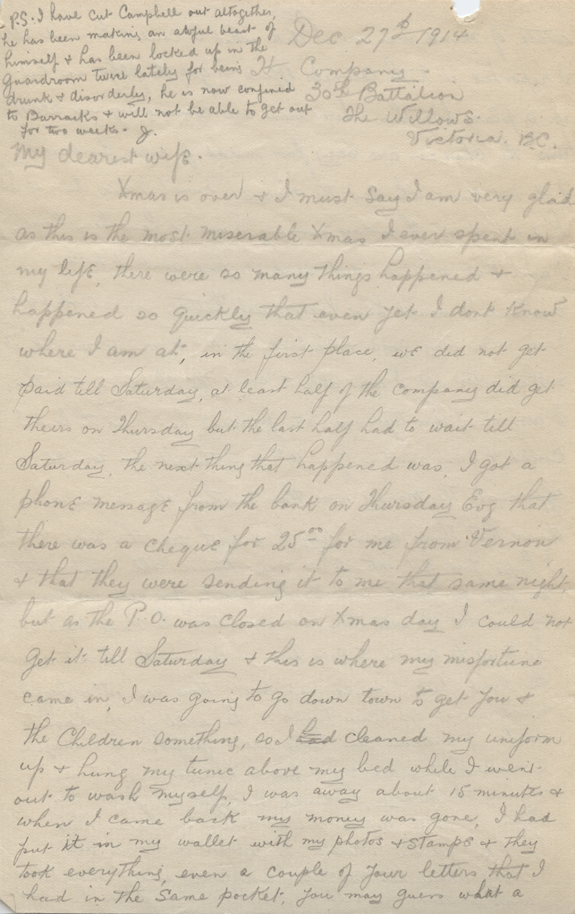 P.S. I have cut Campbell out altogether,
he has been making an awful beast of
himself & has been locked up in the
Guardroom twice lately for being
drunk & disorderly, he is now confined
to Barracks & will not be able to get out
for two weeks. J.
Dec 27th 1914
H. Company.
30th Battalion
The Willows.
Victoria. B.C.
My dearest wife.
Xmas is over & I must say I am very glad
as this is the most miserable Xmas I ever spent in
my life, there were so many things happened &
happened so quickly that even yet I dont know
where I am at, in the first place, we did not get
paid till Saturday, at least half of the company did get
theirs on Thursday but the last half had to wait till
Saturday. the next thing that happened was, I got a
phone message from the bank on Thursday Evg that
there was a cheque for 25.00 for me from Vernon
& that they were sending it to me that same night,
but as the P.O. was closed on Xmas day I could not
get it till Saturday & this is where my misfortune
came in, I was going to go down town to get you &
the Children something, so I had cleaned my uniform
up & hung my tunic above my bed while I went
out to wash myself, I was away about 15 minutes &
when I came back my money was gone, I had
put it in my wallet with my photos & stamps & they
took everything, even a couple of your letters that I
had in the same pocket, you may guess what a